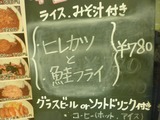 ライス、みそ汁付き
ヒレカツ
と
鮭フライ
¥780
グラスビール or ソフトドリンク付き
・コーヒー(ホット、アイス)